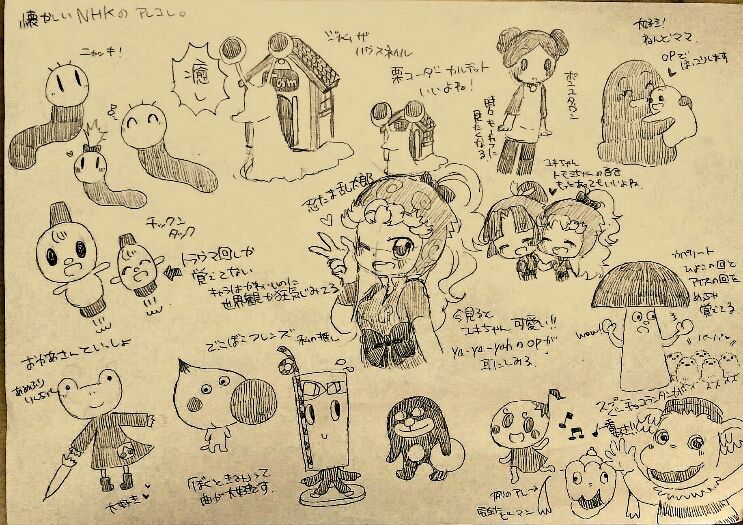 懐かしいNHKのアレコレ。
ニャッキ!
癒し
ジャム・ザ
ハウスネイル
栗コーダーカルテット
いいよね!
ポコ
時々むしょうに
見たくなる
大好き!
ねんどママ
OPで
ほっこりします
忍たま乱太郎
ユキちゃん
トモミちゃんの
もっとあってもいいよね。
チックン
タック
トラウマ回しか
覚えてない
キャラはかわいいのに
世界観が狂気じみてる
今見ると
ユキちゃん可愛い!!
ya-ya-yahのOPが
耳にしみる
ひよこの回と
アイスの回を
めちゃ
覚えてる
wow!
おかあさんといっしょ
あめふり
りんちゃん
大好き
でこぼこフレンズ
私の推し
「ぼくときみ」って
曲が大好きです。
スプー
例のアレ